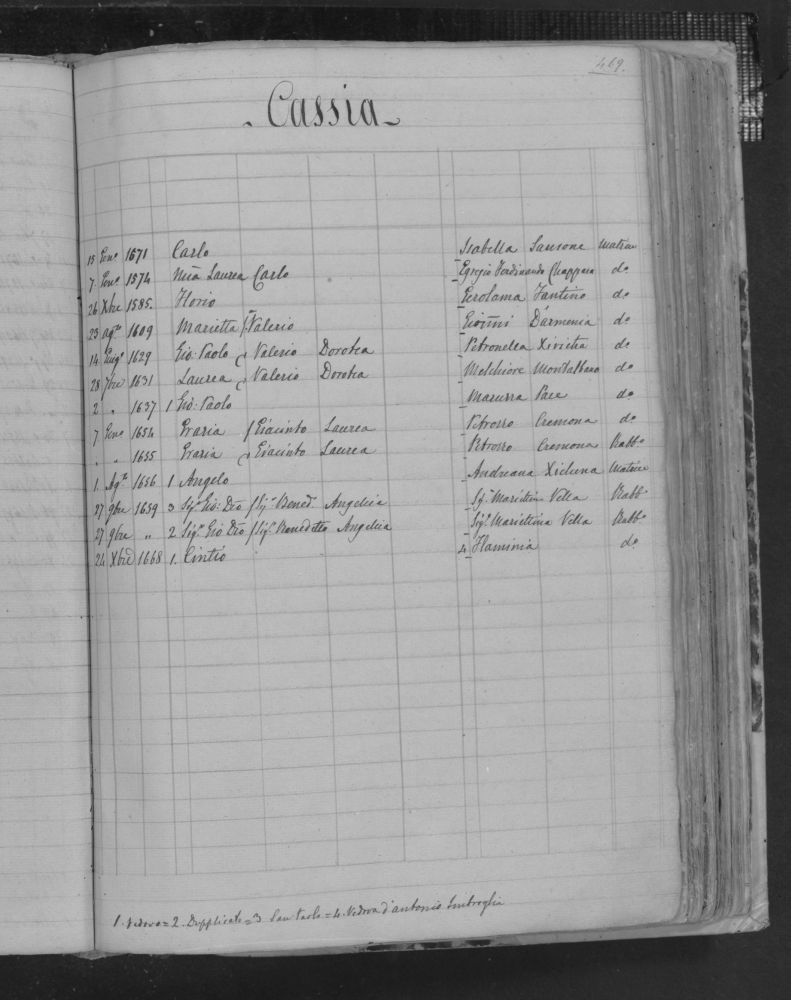 469.
Cassia
15 Gen° 1571 Carlo Isabella Sansone Matrice
7 Gen° 1574 Laurea Carlo Egregio Ferdinando Chappara d°
26 Xbre 1585. Florio Gerolama Fantino d°
23 ag° 1609 Marietta Valerio Darmenia d°
14 Giug° 1629 Gio: Paolo Valerio Dorotea Petronella Xiricha d°
28 7bre 1631 Laurea Valerio Dorotea Melchiore Montalbano d°
2 " 1637 1 Gio: Paolo Pace d°
7 Gen° 1654 Grazia Giacinto Laurea Petrozzo Cremona d°
" " 1655 Grazia Giacinto Laurea Petrozzo Cremona Rabb°
1. Ag° 1656 1 Angelo Andreana Xicluna Matrice
27 9bre 1659 3 Sig. Gio: Dio Sig. Bened. Angelica Sig. Mariettina Vella Rabb°
27 9bre " 2 Sig. Gio Dio Sig. Benedetto Angelica Sig. Mariettina Vella Rabb°
24 Xbre 1668 1. Cintio 4 Flaminia d°
1. Vedovo = 2. Dupplicato = 3 San Paolo = 4. Vedova d'antonio Imbroglia